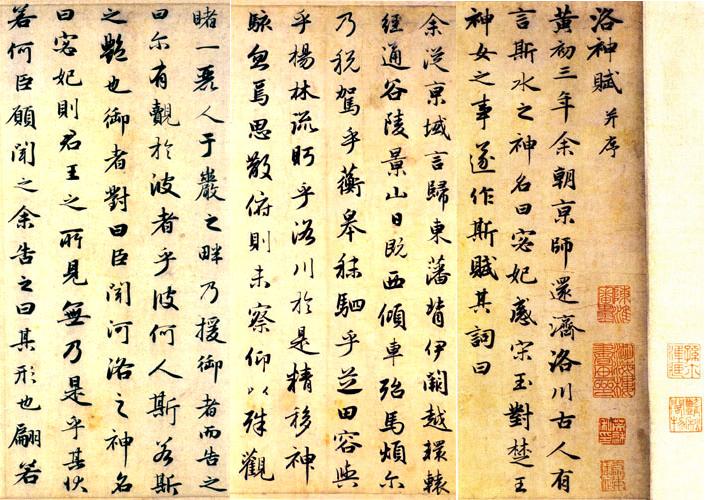 洛神賦 并序
黃初三年余朝京師還濟洛川古人有
言斯水之神名曰宓妃感宋玉對楚王
神女之事遂作斯賦其詞曰
余從京域言歸東藩背伊闕越轘轅
經通谷陵景山日既西傾車殆馬煩尒
乃稅駕乎蘅皋秣駟乎芝田容與
乎楊林流眄乎洛川於是精移神
駭忽焉思散俯則未察仰以殊觀
睹一麗人于巖之畔乃援御者而告之
曰尒有覿於彼者乎彼何人斯若斯
之豔也御者對曰臣聞河洛之神名
曰宓妃則君王之所見無乃是乎其狀
若何臣願聞之余告之曰其形也翩若